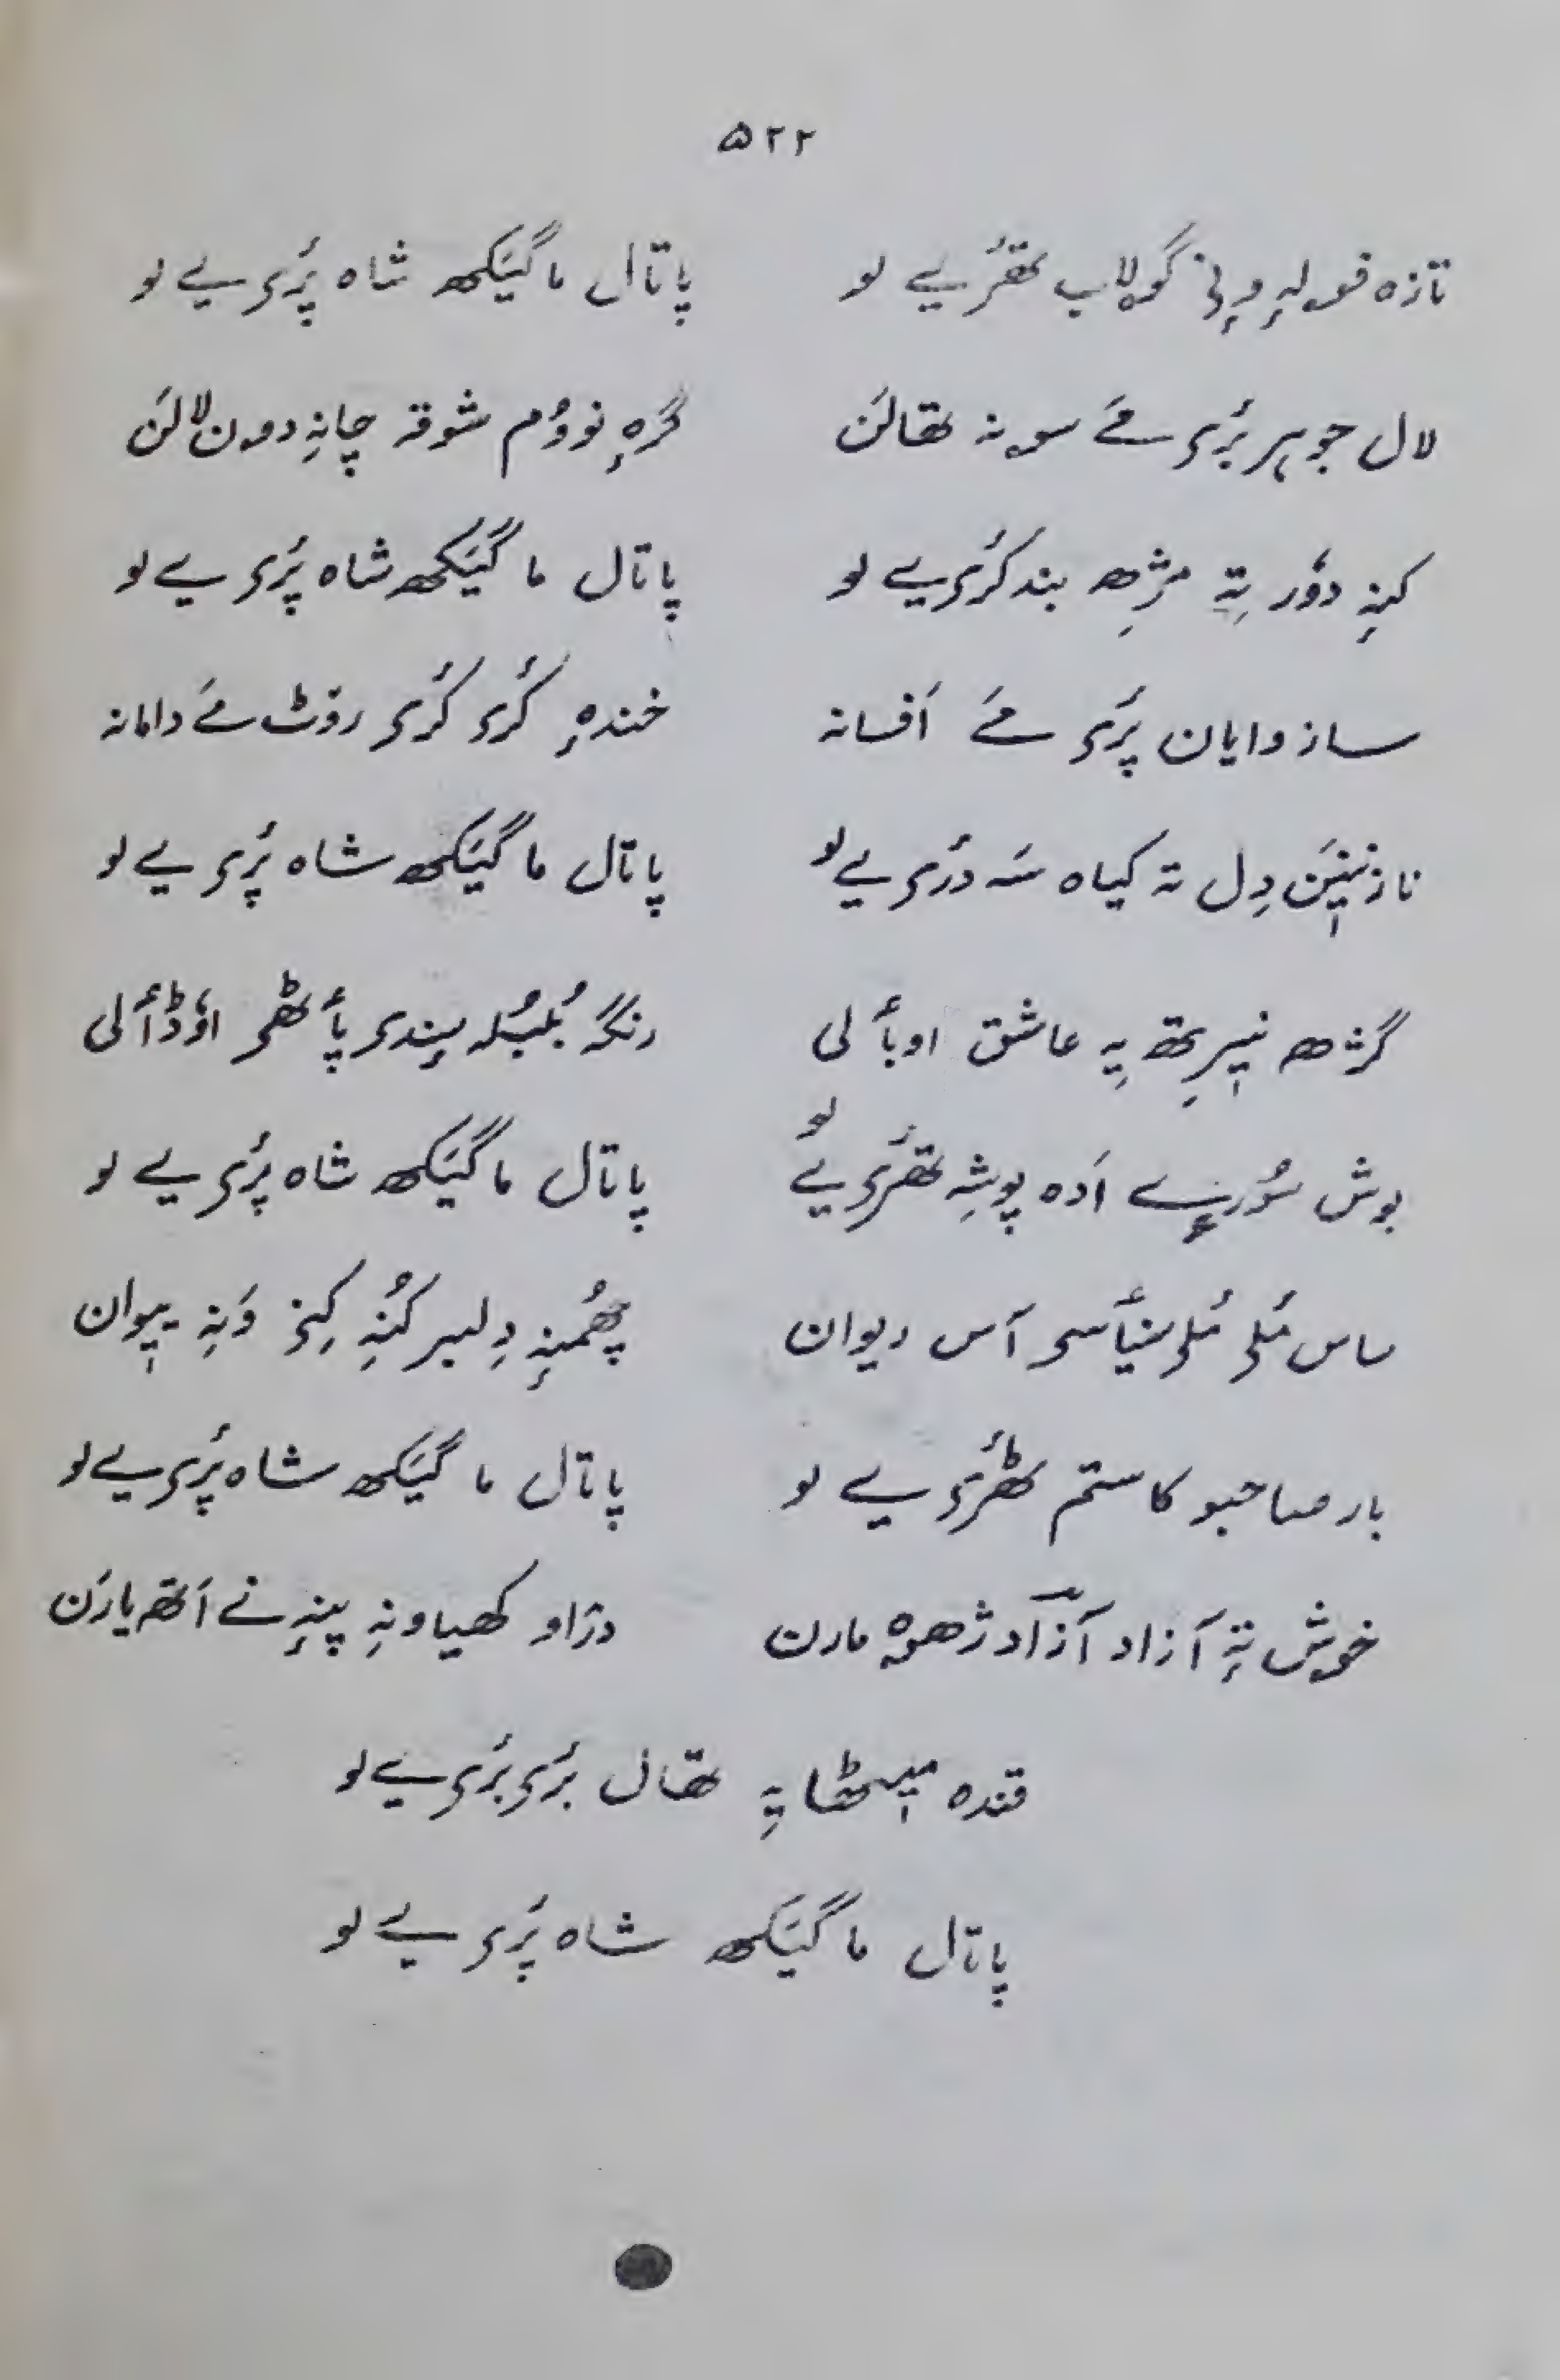 ۵۲۲
تازہ فولہٕ ونِۍ گولاب تھٔرۍیے لو پاتال ما گیٚکھ شاہ پٔرۍیے لو
لال جوہر بٔرۍ مےٚ سونہ تھالَن گرِٕہ نوٚوُم شوقہ چانِہ دون لالَن
کنہِ دوٗر تہٕ مژِھ بند کٔرۍیے لو پاتال ما گیٚکھ شاہ پٔرۍیے لو
ساز وایان پٔرۍ مےٚ اَفسانہ خندہٕ کٔرۍ کٔرۍ روٚٹ مےٚ دامانہ
نازنیٖنَن دِل تہ کیاہ سَہ دٔرۍیے لو پاتال ما گیٚکھ شاہ پٔرۍیے لو
گژھ نیٖرِتھ یہِ عاشق اوبٲلی رنگہٕ بُلبُلہ سِندۍ پٲٹھۍ اوٗڈٲلی
بوش اَدہ پوشہِ تھٔرۍیے لو پاتال ما گیٚکھ شاہ پٔرۍیے لو
ساس مٔلۍ مٔلۍ سنیٲسۍ آس ریوان چھُمنہٕ دِلبر کُنہِ کِنۍ وَنہِ یِیوان
بار صاحبو کا ستم تھٔرۍیے لو پاتال ما گیٚکھ شاہ پٔرۍیے لو
خوش تہٕ آزاد آزاد ژھوہ مارن دژاو کھیاونہِ پنہٕ نے اَتھ یارَن
قندہ میٖٹھا یہِ تھال بٔرۍ بٔرۍیے لو
پاتال ما گیٚکھ شاہ پٔرۍیے لو